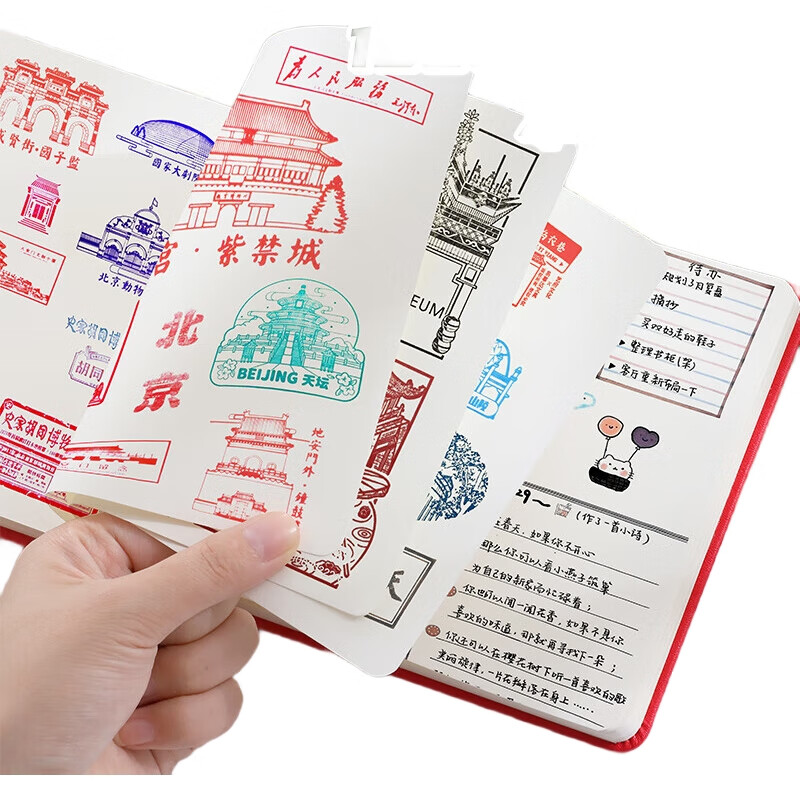 為人民服務
國子監
國家大劇院
北京動物
史家胡同博
胡同
史家胡同博物
宫·紫禁城
北
京
BEIJING 天坛
地安門外·鐘鼓
EUM
待办
规划3月复盘
摘抄
买双好走的鞋子
▶ 整理书柜(架)
▶ 客厅重新布局一下
29~
(作了一首小语)
春天,如果你不开心
那么你可以看小燕子筑巢
为自己的新家而忙碌着;
你也可以闻一闻花香,如果不是你
喜欢的味道,那就再寻找下一朵;
你还可以在樱花树下听一首喜欢的歌
美丽旋律,一片花瓣落在身上……